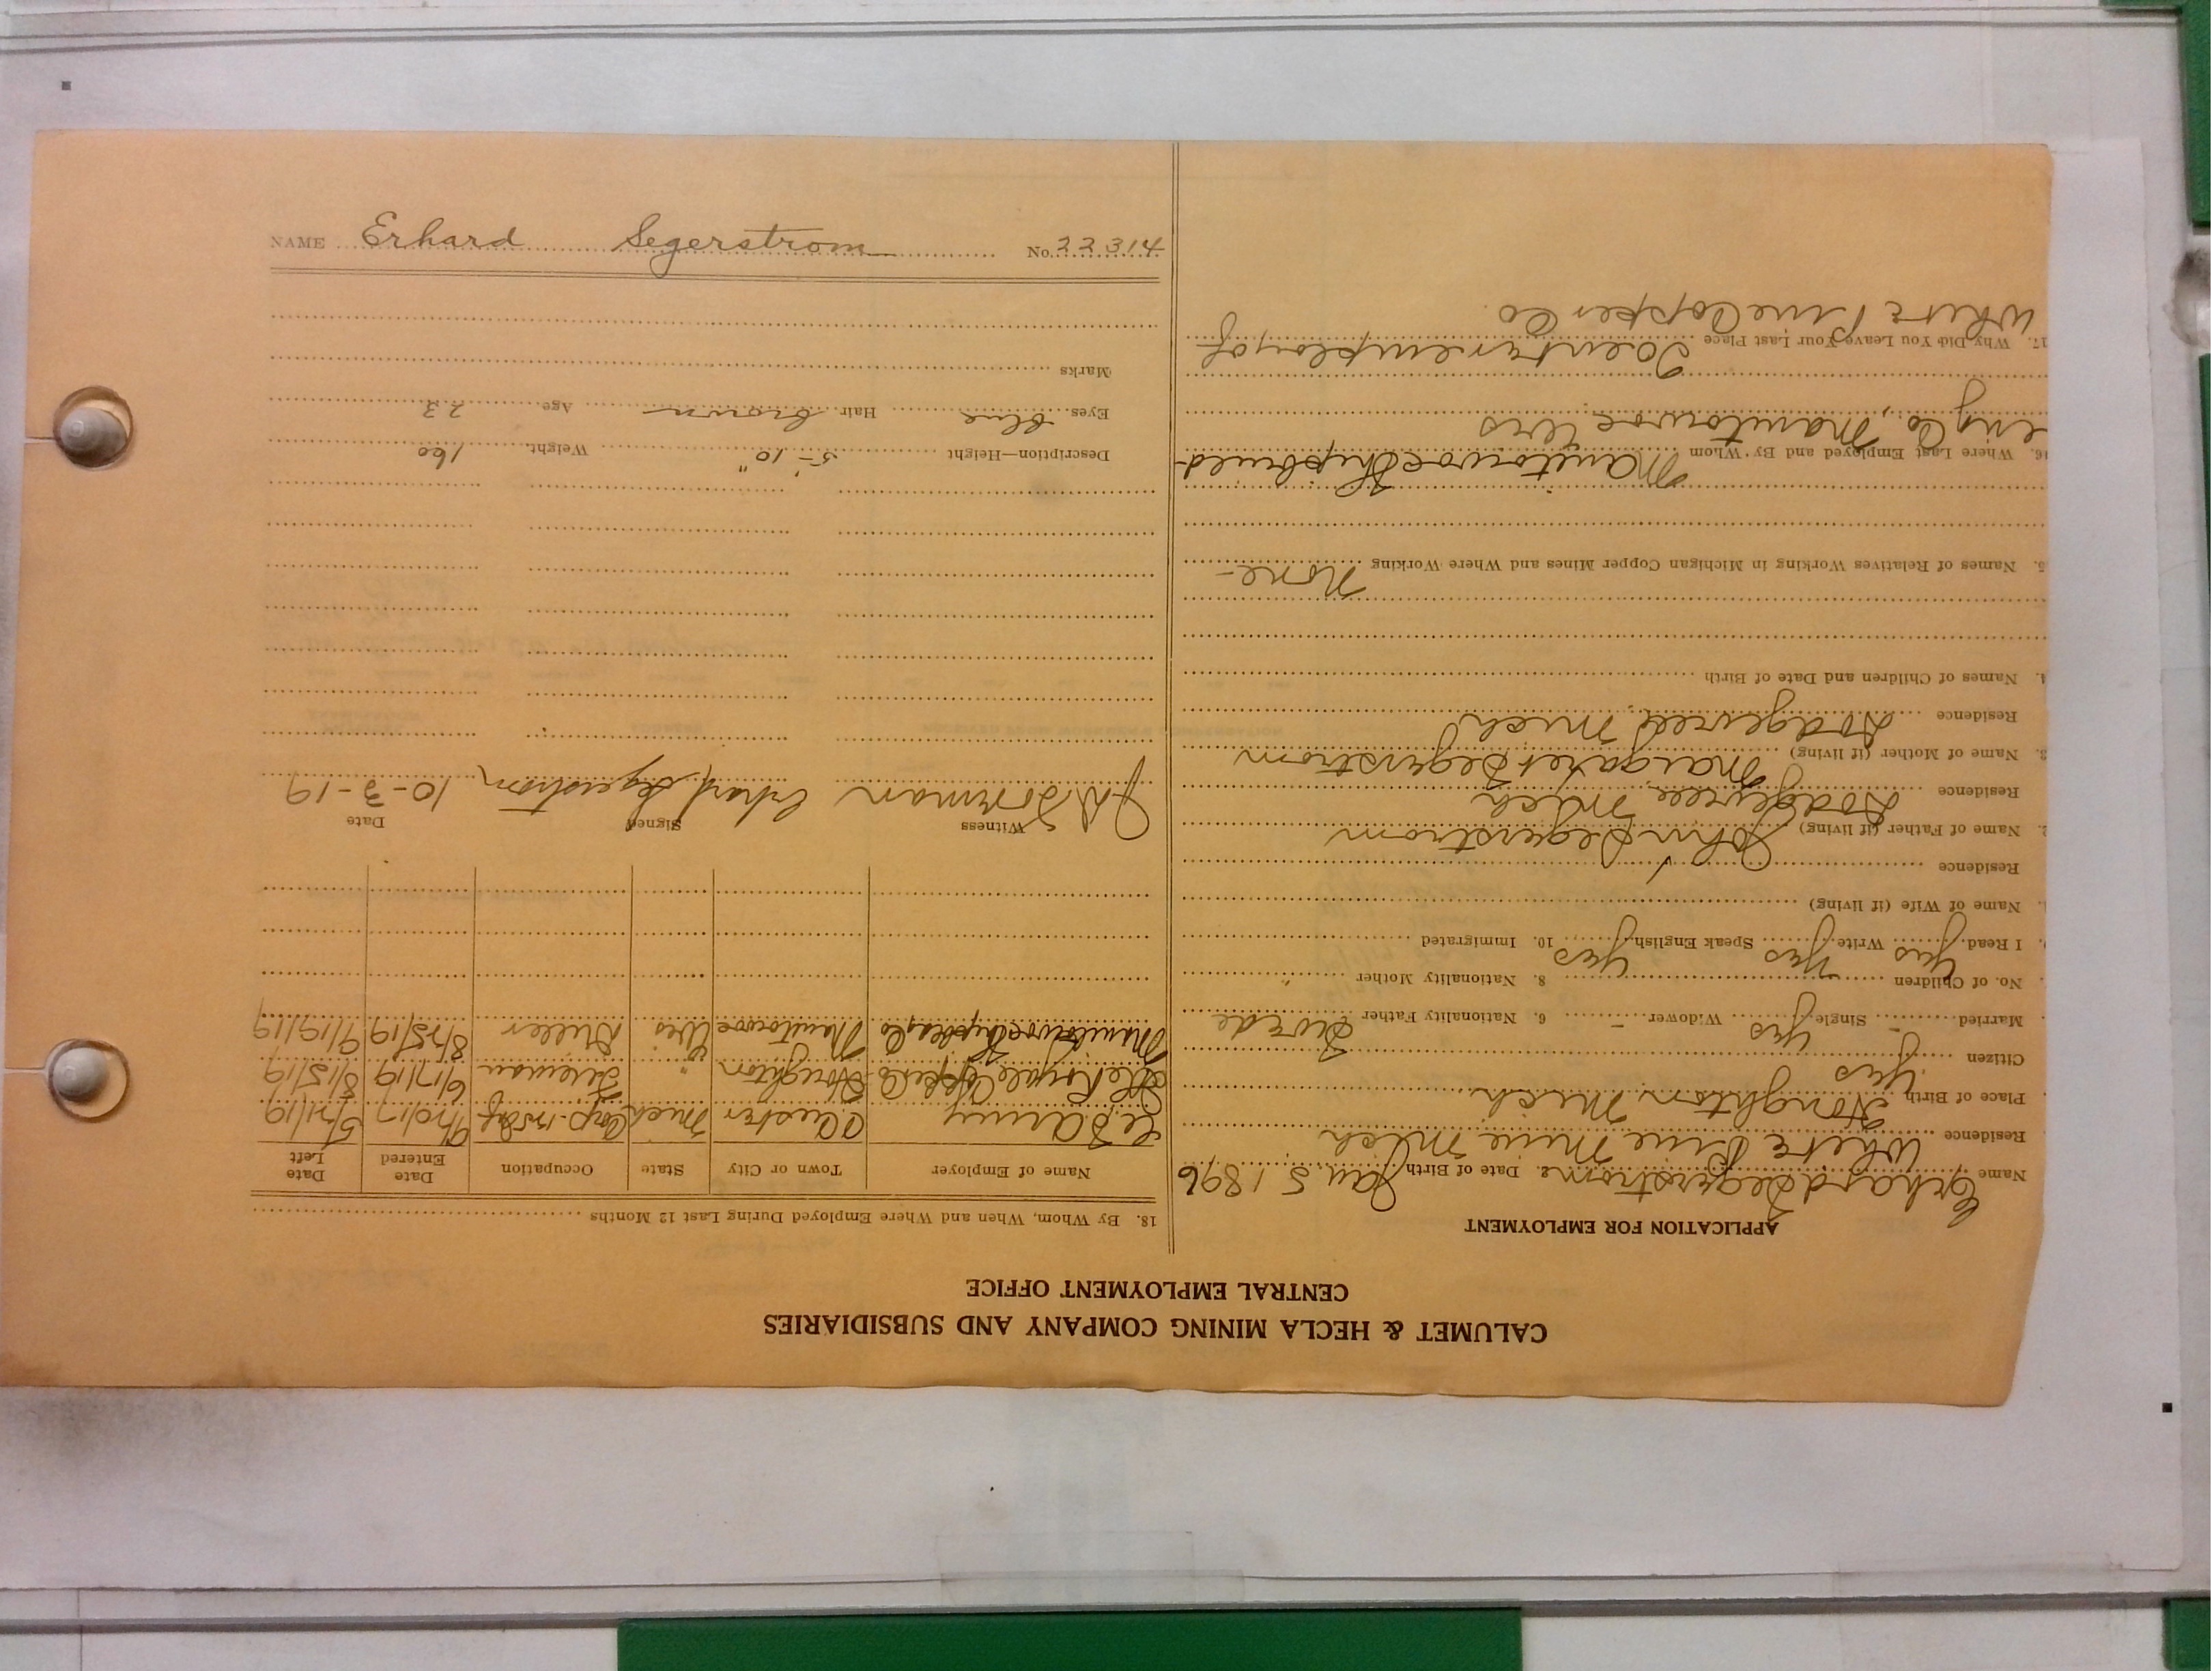 CALUMET & HECLA MINING COMPANY AND SUBSIDIARIES
CENTRAL EMPLOYMENT OFFICE
APPLICATION FOR EMPLOYMENT
Name Erhard Segerstrom Date of Birth Jan 5 1896
Residence White Pine Mine Mich
Place of Birth Houghton Mich
Citizen yes
Married - Single yes Widower - 6. Nationality Father Swede
No. of Children - 8. Nationality Mother "
I Read yes Write yes Speak English yes 10. Immigrated
Name of Wife (if living)
Residence
2. Name of Father (if living) John Segerstrom
Residence Dodgeville Mich
3. Name of Mother (if living) Margaret Segerstrom
Residence Dodgeville Mich
4. Names of Children and Date of Birth
5. Names of Relatives Working in Michigan Copper Mines and Where Working
None -
16. Where Last Employed and By Whom Manitowoc Shipbuild-
ing Co., Manitowoc Wis
17. Why Did You Leave Your Last Place To enter employ of
White Pine Copper Co
18. By Whom, When and Where Employed During Last 12 Months
Name of Employer Town or City State Occupation Date Entered Date Left
U S Army Custer Mich 9/20/17 5/21/19
Isle Royale Copper Co Houghton " Fireman 6/17/19 8/15/19
Manitowoc Shipbldg Co Manitowoc Wis 8/25/19 9/19/19
Witness Signed Date
Erhard Segerstrom 10-3-19
Description—Height 5'-10" Weight 160
Eyes blue Hair brown Age 23
Marks
NAME Erhard Segerstrom No. 22314